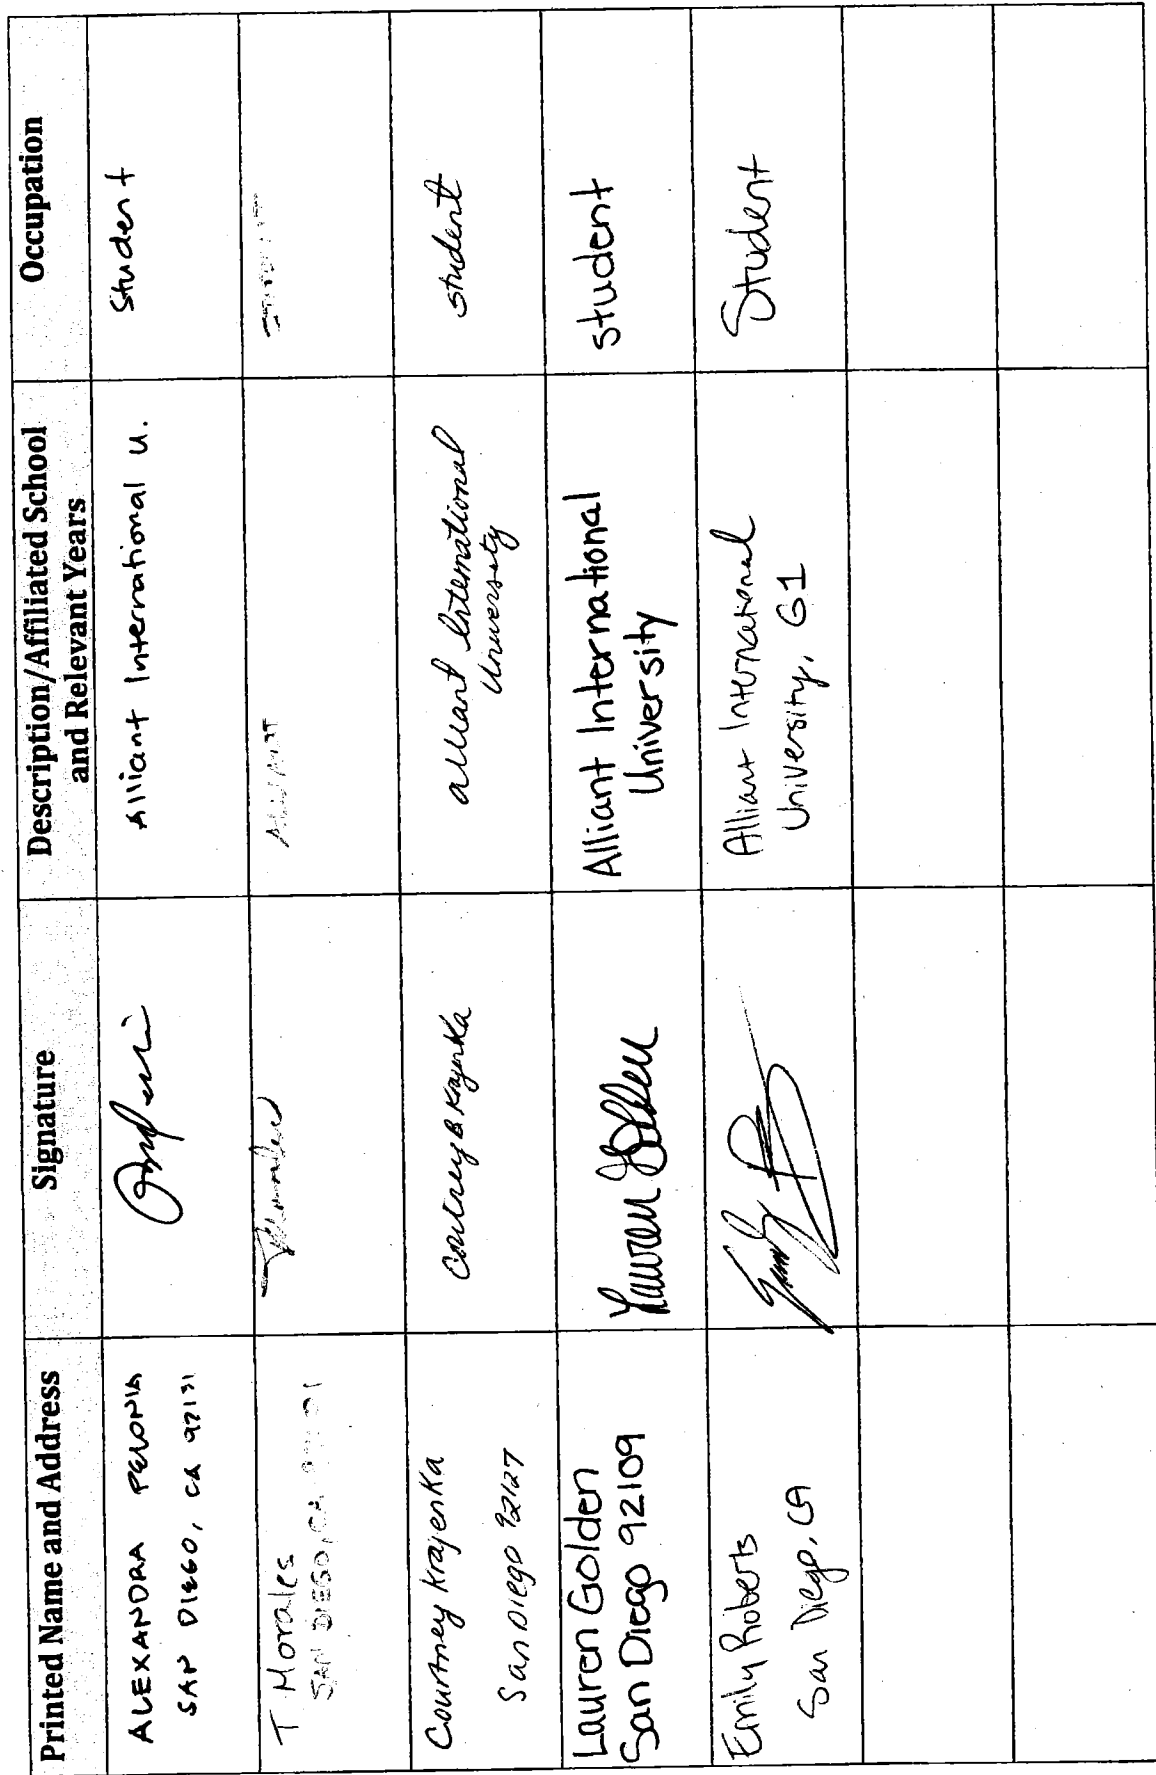 Printed Name and Address Signature Description/Affiliated School and Relevant Years Occupation
ALEXANDRA PERONIA
SAN DIEGO, CA 92131
Alliant International U.
Student
T Morales
SAN DIEGO, CA
Courtney Krajenka
San Diego 92127
Courtney B Krajenka
Alliant International
University
student
Lauren Golden
San Diego 92109
Lauren Golden
Alliant International
University
student
Emily Roberts
San Diego, CA
Alliant International
University, G1
Student